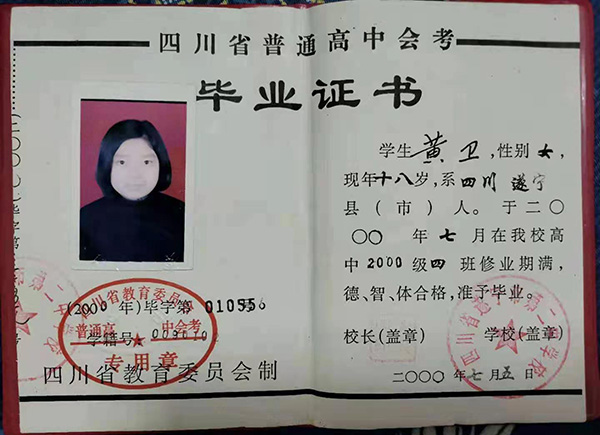 四川省普通高中会考
毕业证书
学生 黄卫,性别女,
现年十八岁,系四川 遂宁
县(市)人。于二〇
〇〇 年 七 月在我校高
中2000级四 班修业期满,
德、智、体合格,准予毕业。
校长(盖章) 学校(盖章)
二〇〇〇 年七月五日
(2000 年)毕字第
学籍号
四川省教育委员会
普通高 中会考
专用章
四川省教育委员会制